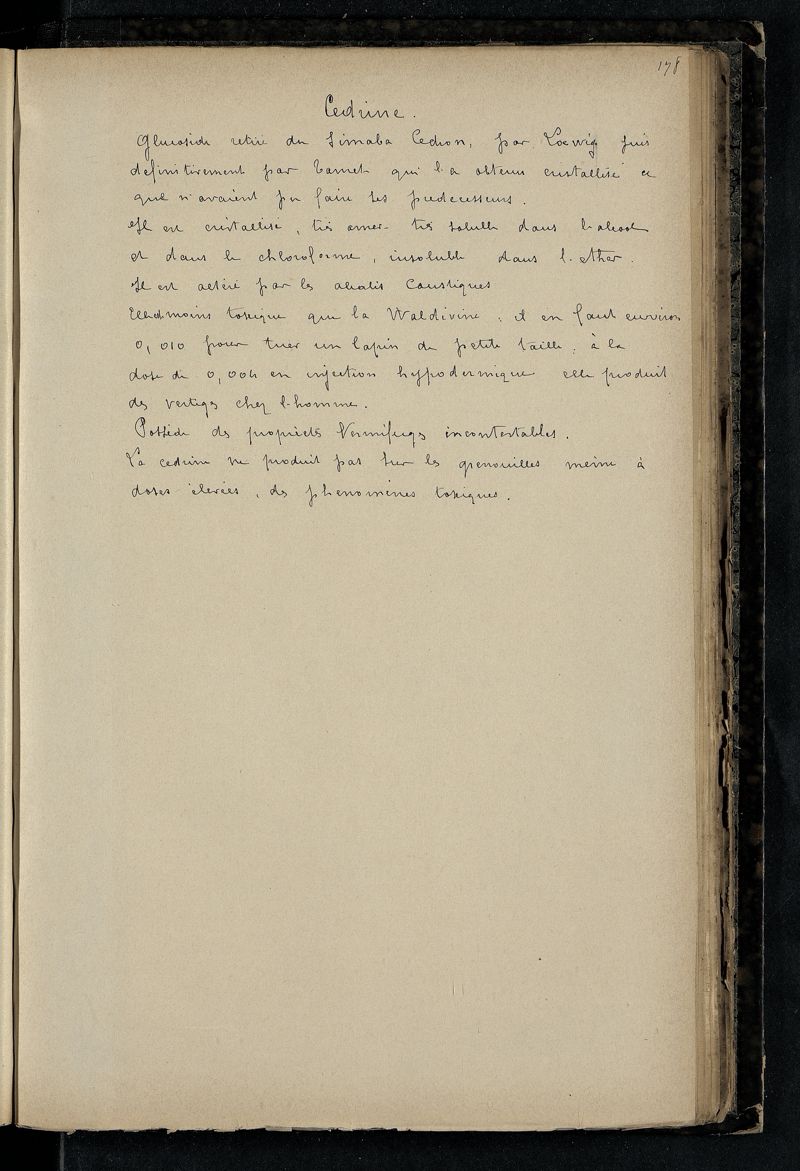 178
Cedrine.
Glucoside retiré du Simaba Cedron, par Loewig puis
definitivement par Tanret qui l'a obtenu cristallisé ce
que n'avaient pu faire ses predecesseurs.
Il est cristallisé, très amer très soluble dans l'alcool
et dans le chloroforme, insoluble dans l'ether.
Il est altéré par les alcalis Caustiques
moins toxique que la Waldivine, il en faut environ
0,010 pour tuer un lapin de petite taille, à la
dose de 0,004 en injection hypodermique elle produit
des vertiges chez l'homme.
Possède des propriétés Vermifuges incontestables.
La cedrine ne produit pas sur les grenouilles meme à
doses élevées, des phenomènes toxiques.